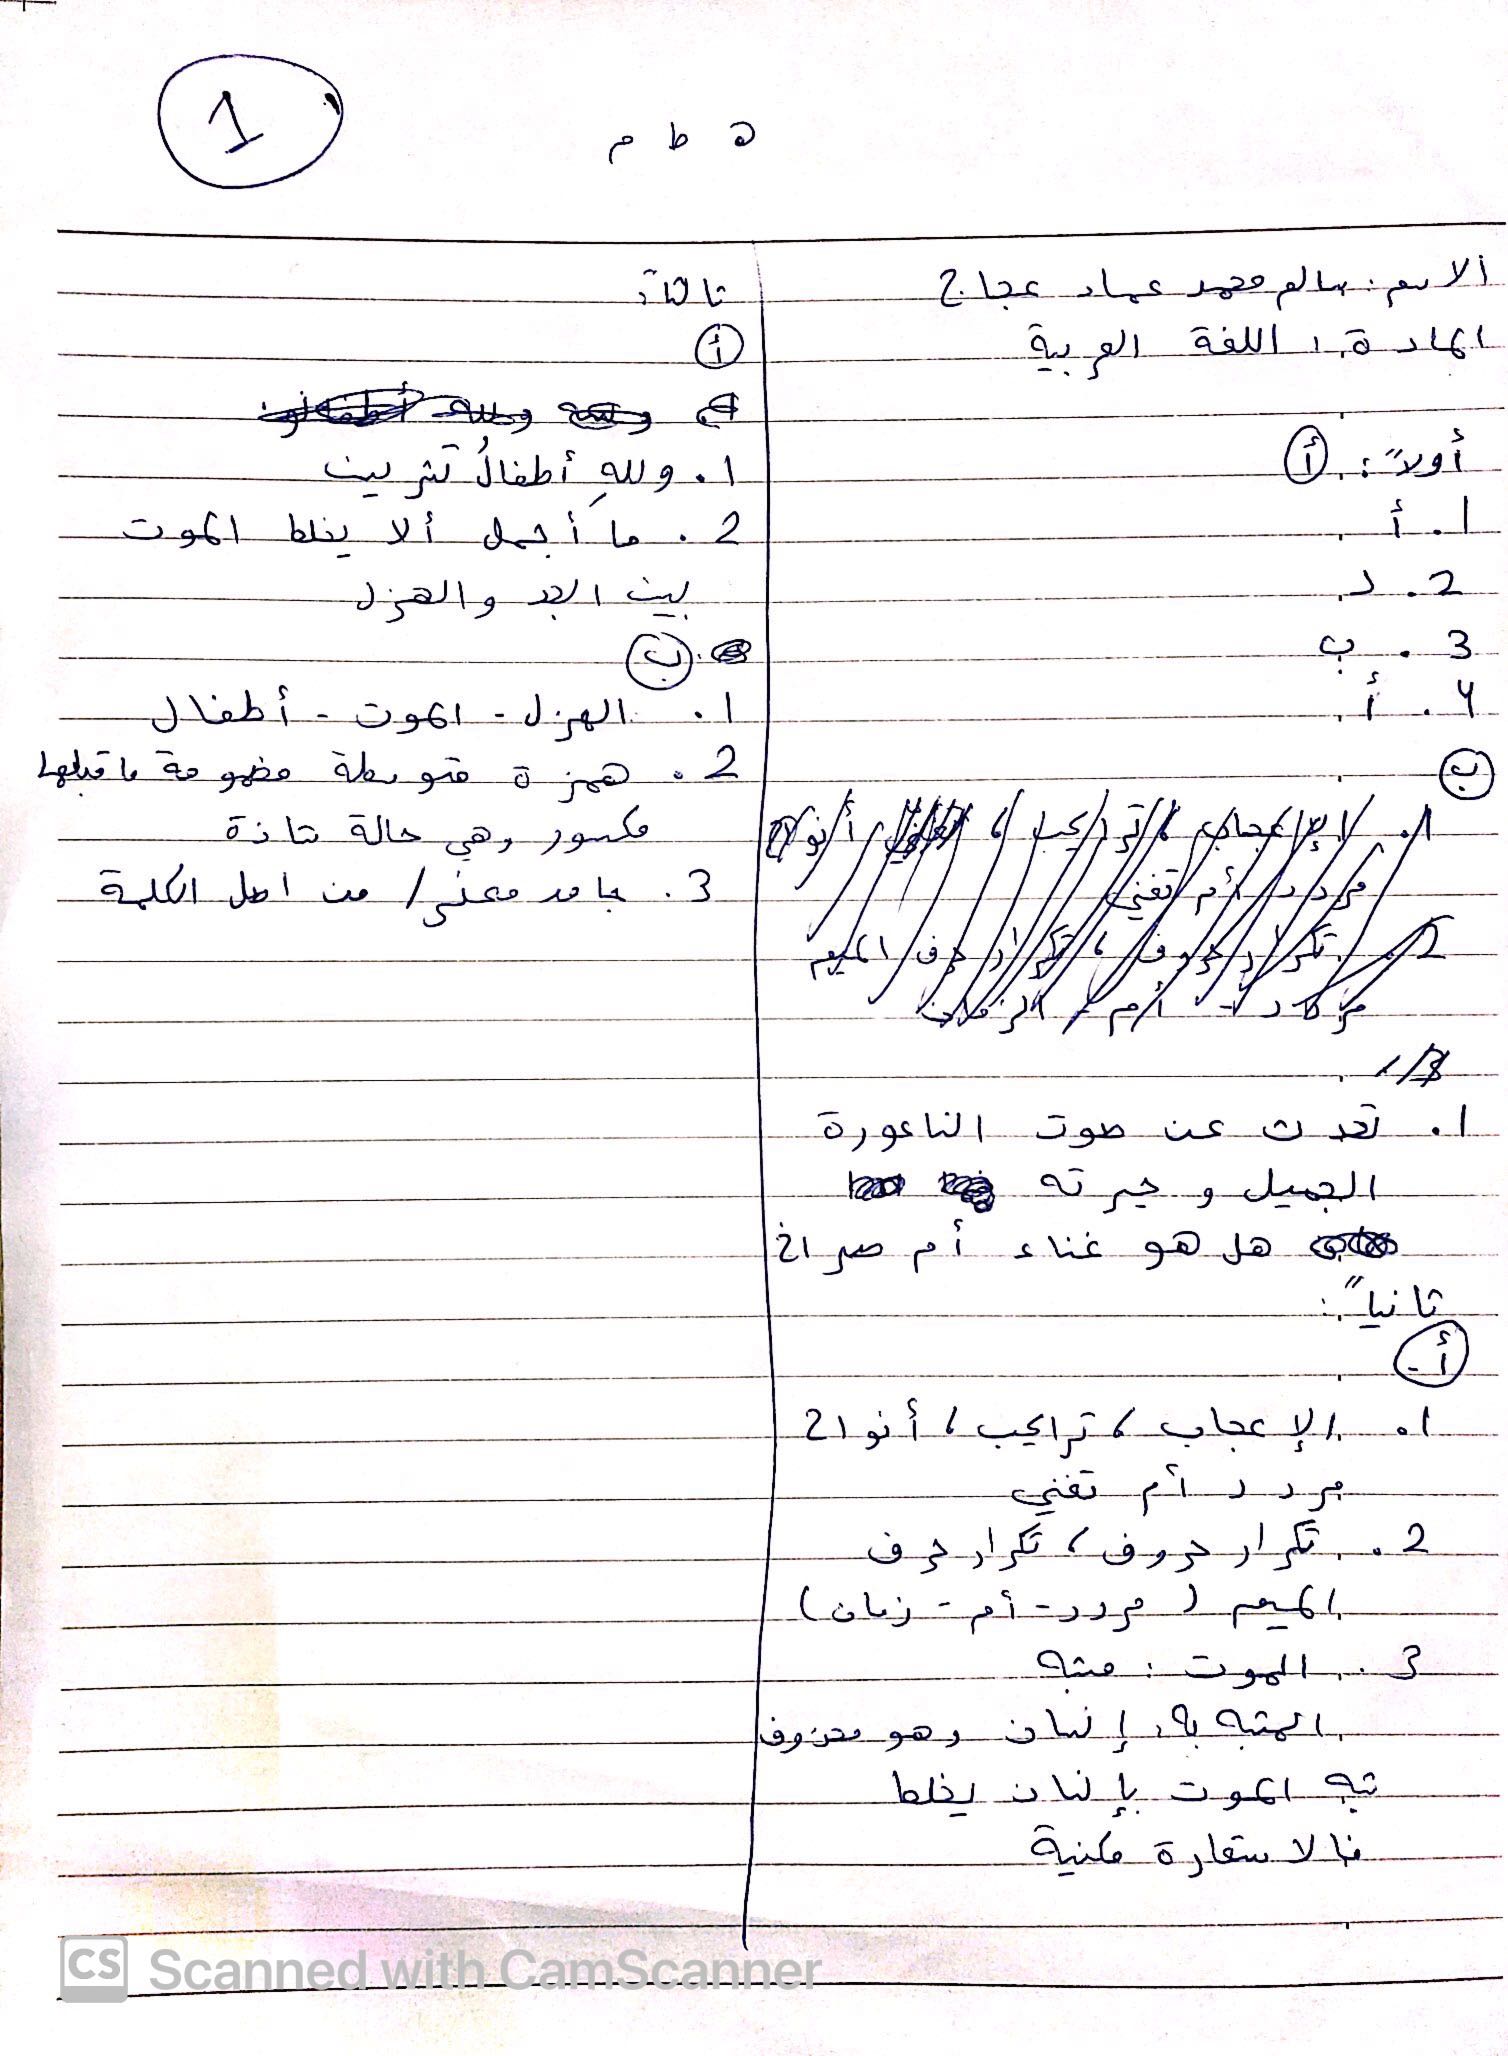 1
ه ط م
الاسم: سالم محمد عماد عجاج
المادة: اللغة العربية
أولاً: أ
1. أ
2. د
3. ب
4. أ
ب
1. الإعجاب، تراكيب، أنواح
مردد أم تغني
2. تكرار حروف، تكرار حرف الميم
مردد - أم - الزمان
3.
1. تحدث عن صوت الناعورة
الجميل و حيرته
هل هو غناء أم صراخ
ثانياً:
أ-
1. الإعجاب، تراكيب، أنواح
مردد أم تغني
2. تكرار حروف، تكرار حرف
الميم (مردد - أم - زمان)
3. الموت: مشبه
المشبه به: إنسان وهو محذوف
شبه الموت بإنسان يخلط
فالاستعارة مكنية
ثالثاً:
أ
1. ولله أطفالُ تشرين
2. ما أجمل ألا يخلط الموت
بين الجد والهزل
ب
1. الهزل - الموت - أطفال
2. همزة متوسطة مضمومة ما قبلها
مكسور وهي حالة شاذة
3. جامد معنى / من اصل الكلمة
CS Scanned with CamScanner